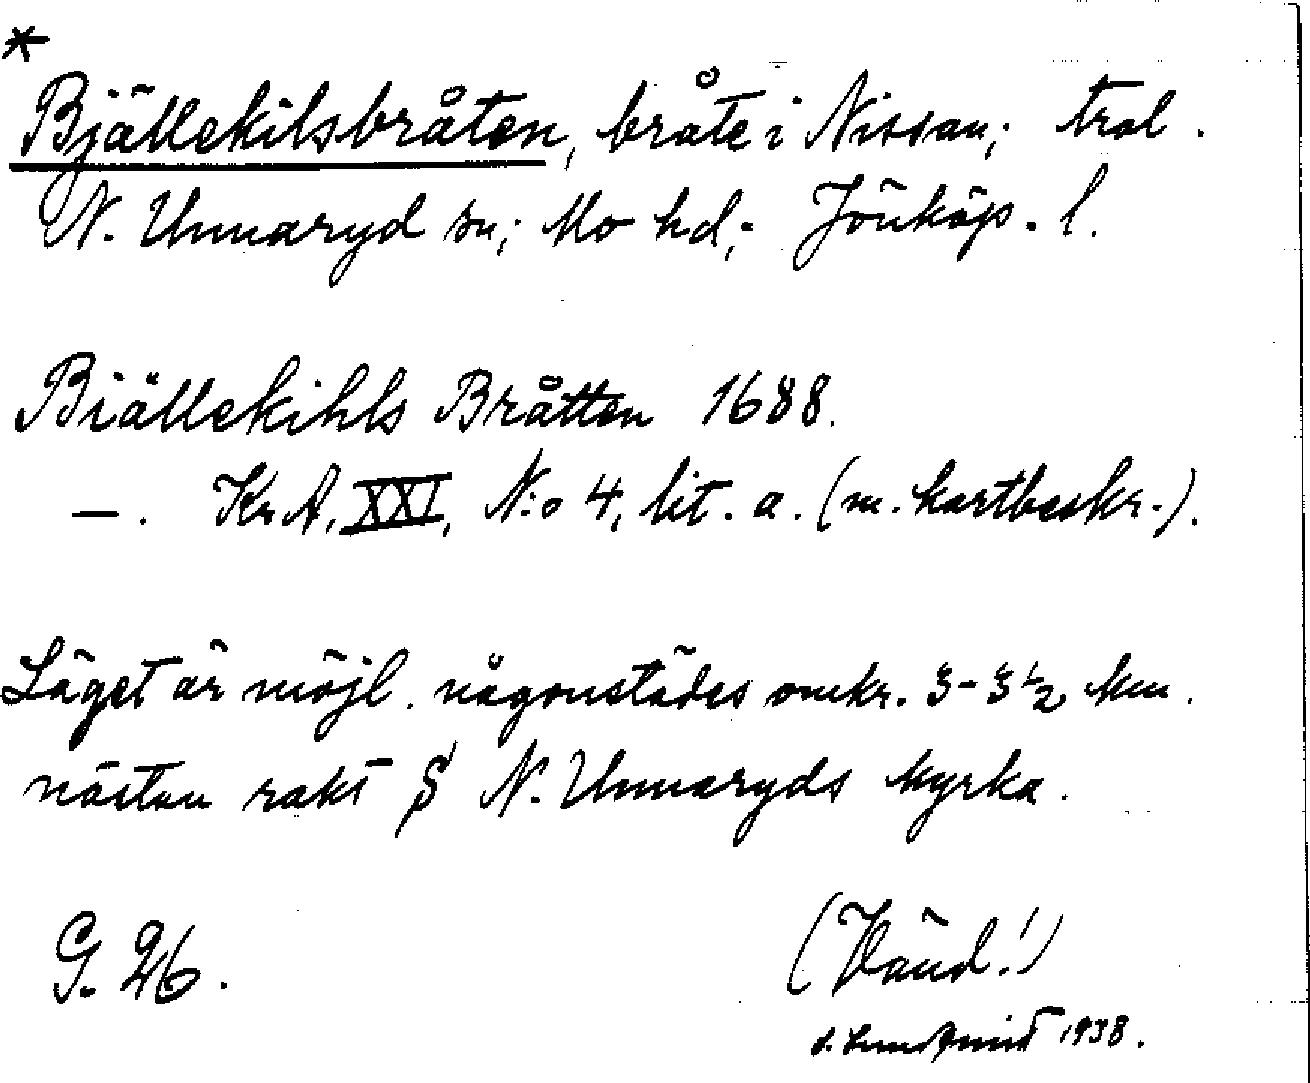 *
Bjällekilsbråten, bråte i Nissan; trol.
N. Unnaryd sn; Mo hd; Jönköp. l.
Biällekihls Bråtten 1688.
—. Kr A, XXI, N:o 4, lit. a. (m. kartbeskr.).
Läget är möjl. någonstädes omkr. 3-3½ km.
nästan rakt S N. Unnaryds kyrka.
G. 26.
(Vänd!)
1938.